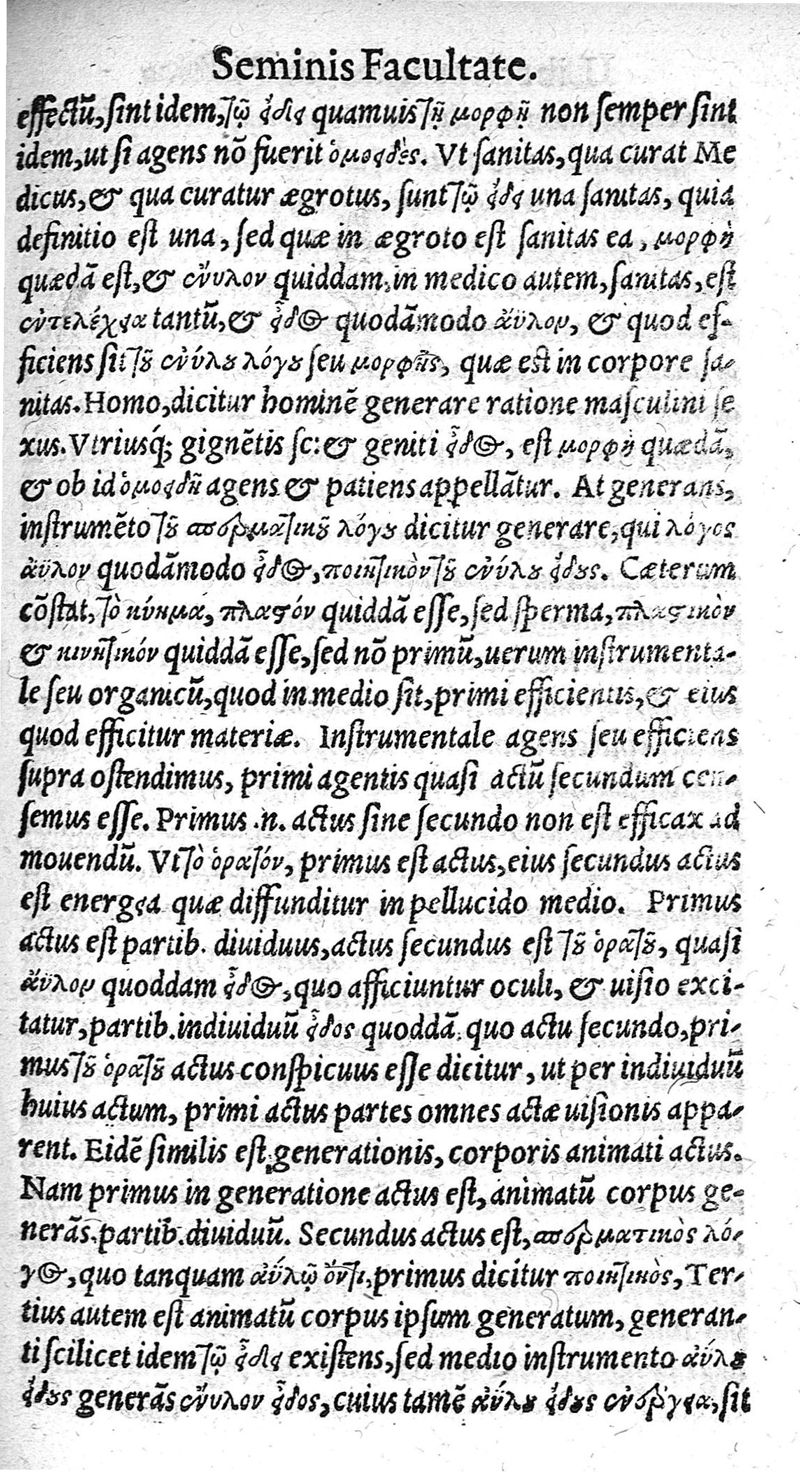 Seminis Facultate.
effectũ, sint idem, τῷ εἴδει quamuis τῇ μορφῇ non semper sint
idem, ut si agens nõ fuerit ὁμοειδὲς. Vt sanitas, qua curat Me
dicus, & qua curatur ægrotus, sunt τῷ εἴδει una sanitas, quia
definitio est una, sed quæ in ægroto est sanitas ea, μορφὴ
quædã est, & ἔνυλον quiddam, in medico autem, sanitas, est
ἐντελέχεια tantũ, & εἶδος quodãmodo ἄϋλον, & quod ef-
ficiens sit τοῦ ἐνύλου λόγου seu μορφῆς, quæ est in corpore sa-
nitas. Homo, dicitur hominẽ generare ratione masculini se
xus. Vtriusq; gignẽtis sc: & geniti εἶδος, est μορφὴ quædã,
& ob id ὁμοειδῆ agens & patiens appellãtur. At generans,
instrumẽto τοῦ σπερματικοῦ λόγου dicitur generare, qui λόγος
ἄϋλον quodãmodo εἶδος, ποιητικὸν τοῦ ἐνύλου εἴδους. Cæterum
cõstat, τὸ κύημα, πλαστόν quiddã esse, sed sperma, πλαστικὸν
& κινητικόν quiddã esse, sed nõ primũ, uerum instrumenta-
le seu organicũ, quod in medio sit, primi efficientis, & eius
quod efficitur materiæ. Instrumentale agens seu efficiens
supra ostendimus, primi agentis quasi actũ secundum cen-
semus esse. Primus .n. actus sine secundo non est efficax ad
mouendũ. Vt τὸ ὁρατόν, primus est actus, eius secundus actus
est energεια quæ diffunditur in pellucido medio. Primus
actus est partib. diuiduus, actus secundus est τοῦ ὁρατοῦ, quasi
ἄϋλον quoddam εἶδος, quo afficiuntur oculi, & uisio exci-
tatur, partib. indiuiduũ εἶδος quoddã, quo actu secundo, pri-
mus τοῦ ὁρατοῦ actus conspicuus esse dicitur, ut per indiuiduũ
huius actum, primi actus partes omnes actæ uisionis appa-
rent. Eidẽ similis est generationis, corporis animati actus.
Nam primus in generatione actus est, animatũ corpus ge-
nerãs, partib. diuiduũ. Secundus actus est, σπερματικὸς λό-
γος, quo tanquam ἀΰλῳ ὄντι, primus dicitur ποιητικὸς, Ter-
tius autem est animatũ corpus ipsum generatum, generan-
ti scilicet idem τῷ εἴδει existens, sed medio instrumento ἀΰλου
εἴδους generãs ἔνυλον εἶδος, cuius tamẽ ἀΰλου εἴδους ἐνέργεια, sit